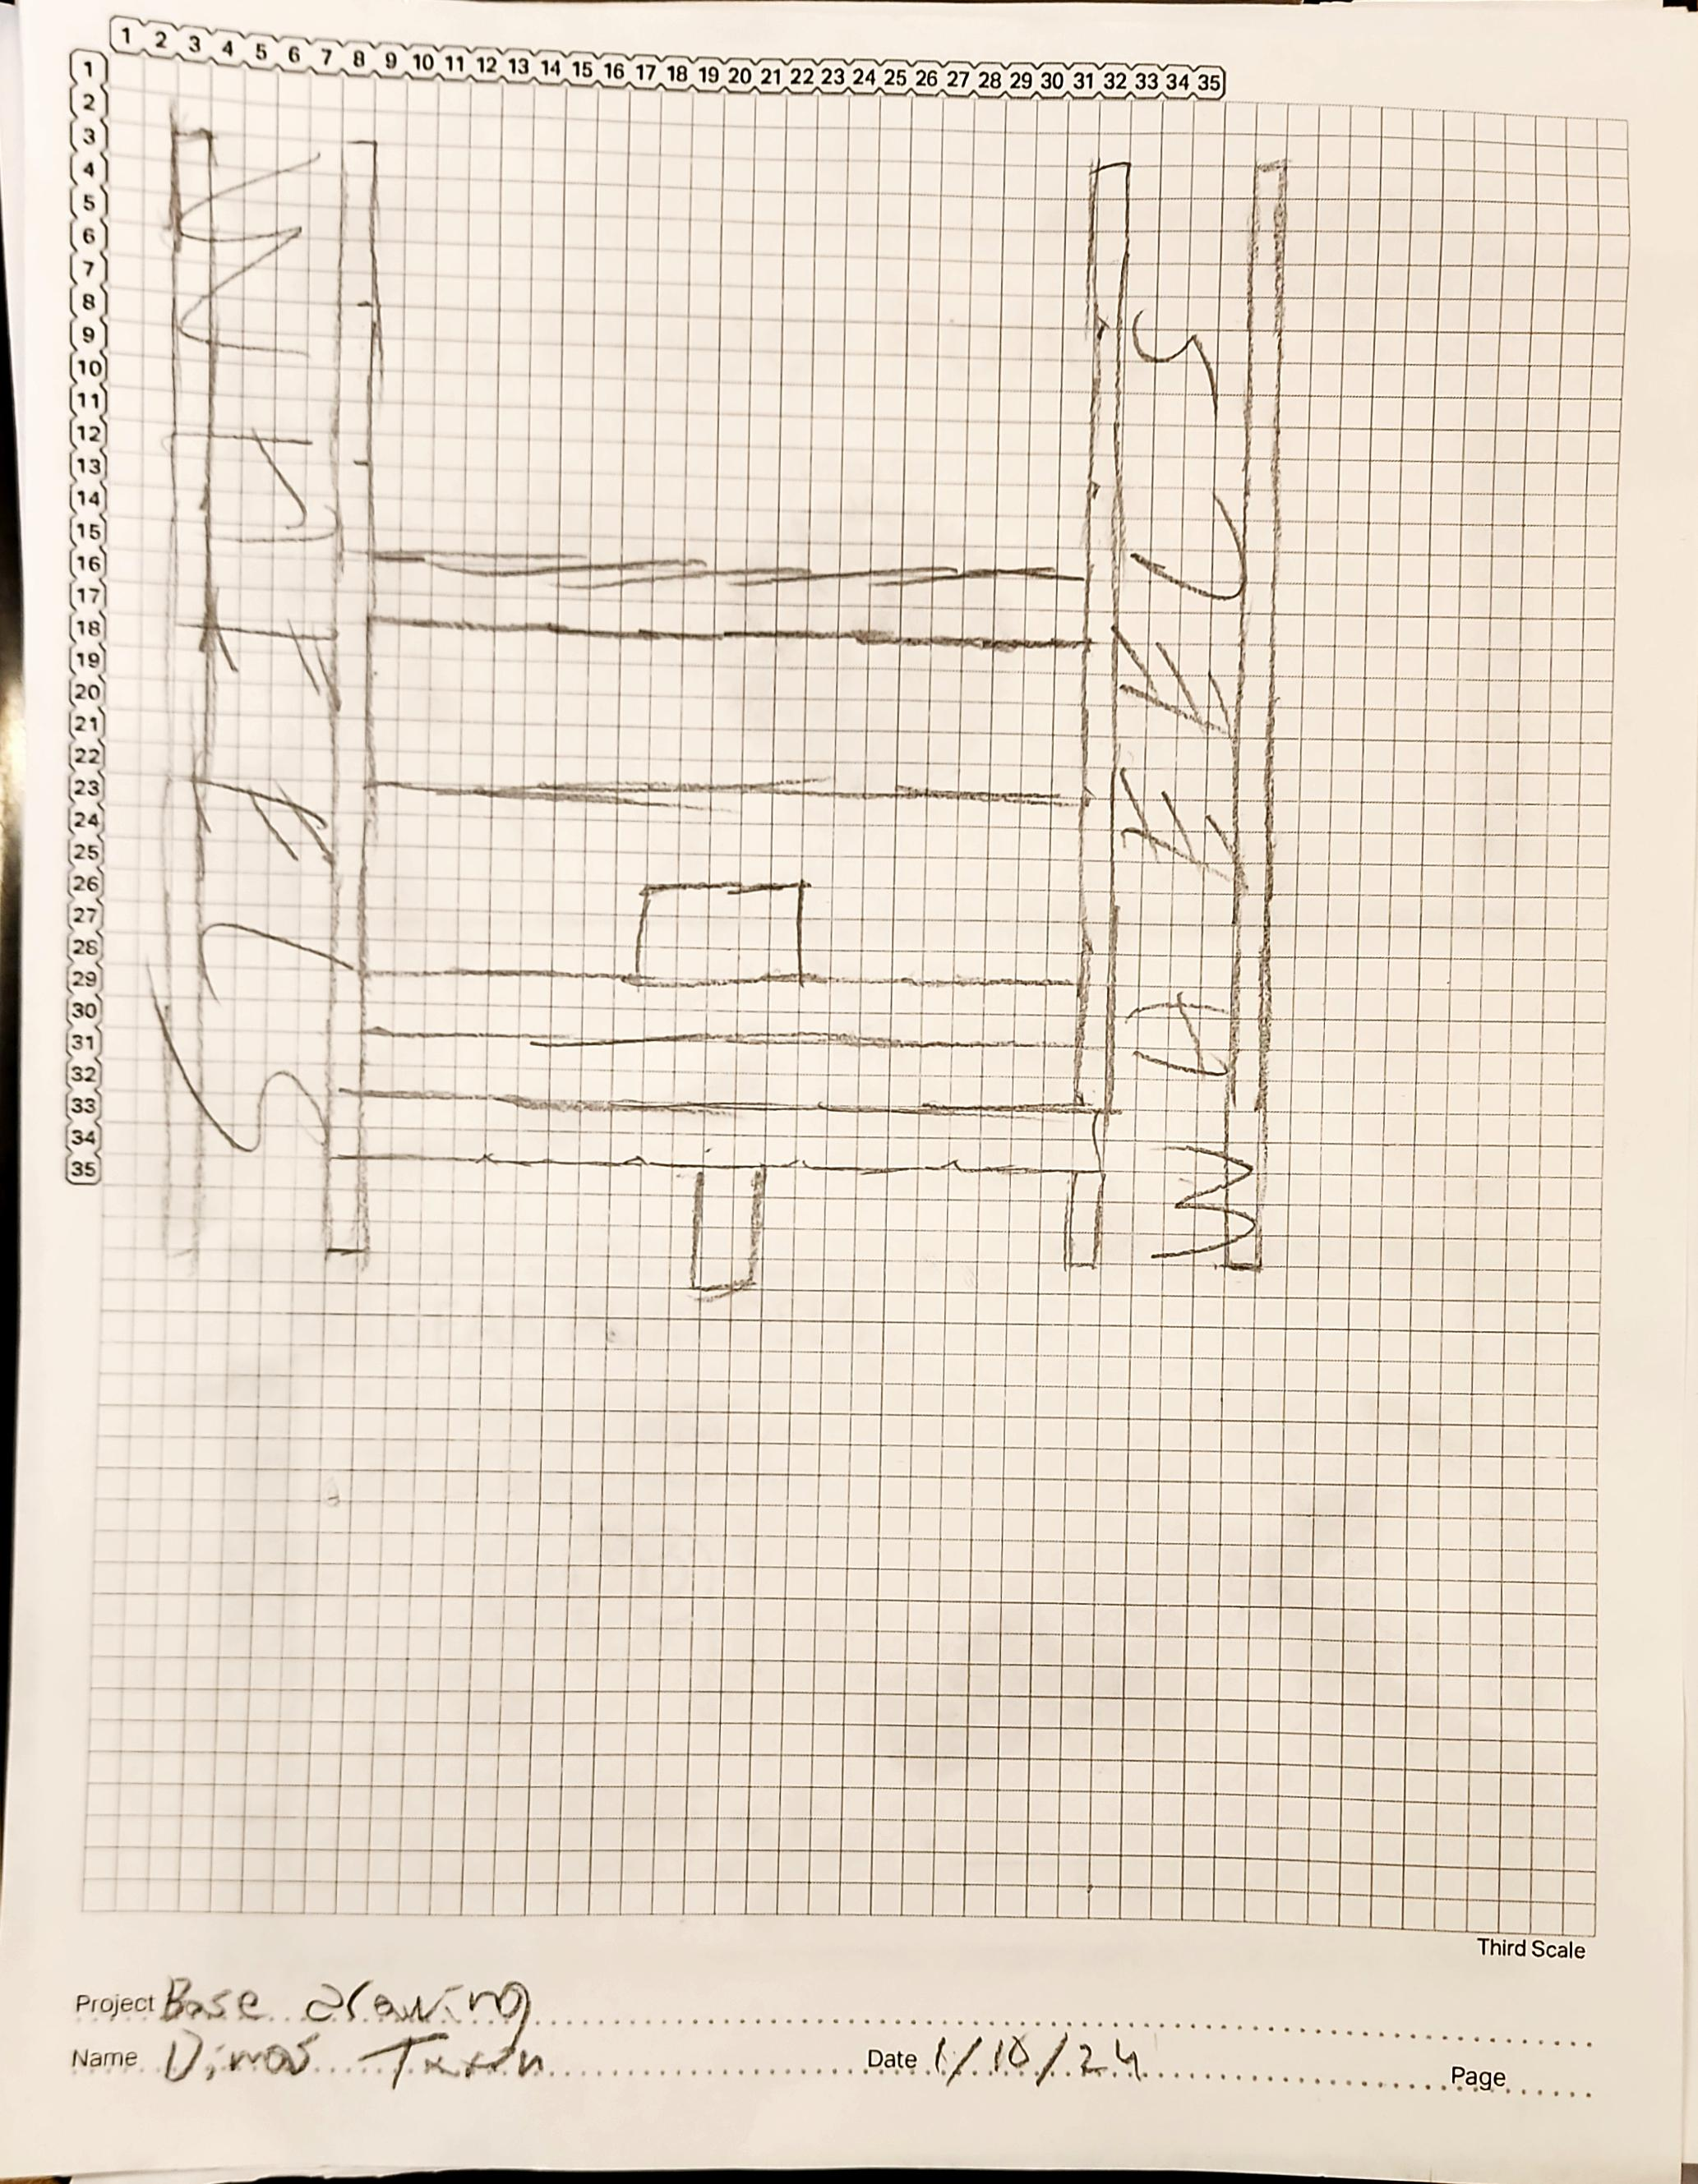 1 2 3 4 5 6 7 8 9 10 11 12 13 14 15 16 17 18 19 20 21 22 23 24 25 26 27 28 29 30 31 32 33 34 35
1
2
3
4
5
6
7
8
9
10
11
12
13
14
15
16
17
18
19
20
21
22
23
24
25
26
27
28
29
30
31
32
33
34
35
Third Scale
Project Base drawing
Name Date 1/10/24 Page